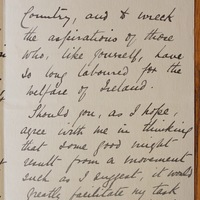 Country, and to wreck
the aspirations of those
who, like yourself, have
so long laboured for the
welfare of Ireland.
Should you, as I hope,
agree with me in thinking
that some good might
result from a movement
such as I suggest, it would
greatly facilitate my task